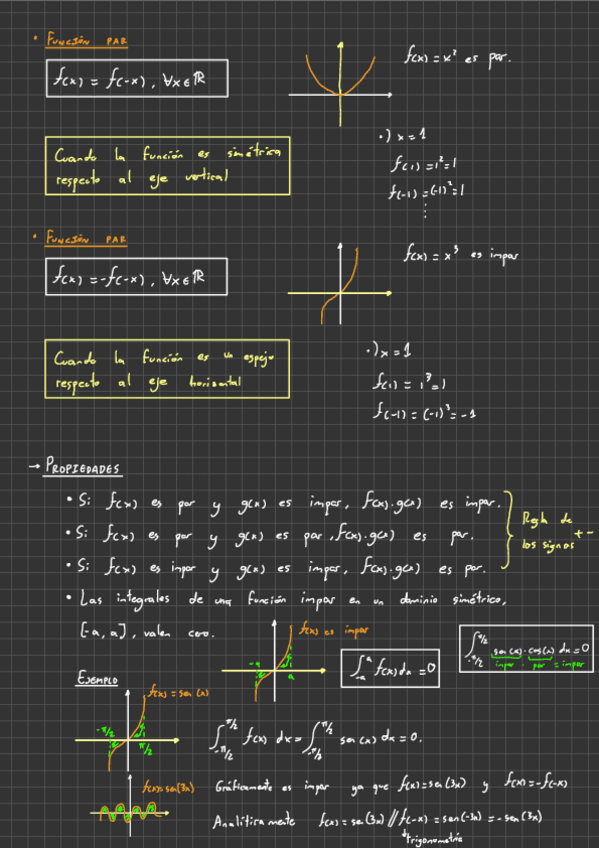 • FUNCIÓN PAR
f(x) = f(-x), ∀x∈ℝ
f(x) = x² es par.
Cuando la función es simétrica
respecto al eje vertical
•) x = 1
f(1) = 1² = 1
f(-1) = (-1)² = 1
⋮
• FUNCIÓN PAR
f(x) = -f(-x), ∀x∈ℝ
f(x) = x³ es impar
Cuando la función es un espejo
respecto al eje horizontal
•) x = 1
f(1) = 1³ = 1
f(-1) = (-1)³ = -1
→ PROPIEDADES
• Si f(x) es par y g(x) es impar, f(x)·g(x) es impar.
• Si f(x) es par y g(x) es par, f(x)·g(x) es par.
• Si f(x) es impar y g(x) es impar, f(x)·g(x) es par.
Regla de
los signos + -
• Las integrales de una función impar en un dominio simétrico,
[-a, a], valen cero.
f(x) es impar
-a
a
∫_{-a}^{a} f(x) dx = 0
∫_{-π/2}^{π/2} sen(x)·cos(x) dx = 0
impar · par = impar
EJEMPLO
f(x) = sen(x)
-π/2
π/2
∫_{-π/2}^{π/2} f(x) dx = ∫_{-π/2}^{π/2} sen(x) dx = 0.
f(x) = sen(3x)
Gráficamente es impar ya que f(x) = sen(3x) y f(x) = -f(-x)
Analíticamente f(x) = sen(3x) // f(-x) = sen(-3x) = -sen(3x)
trigonometría